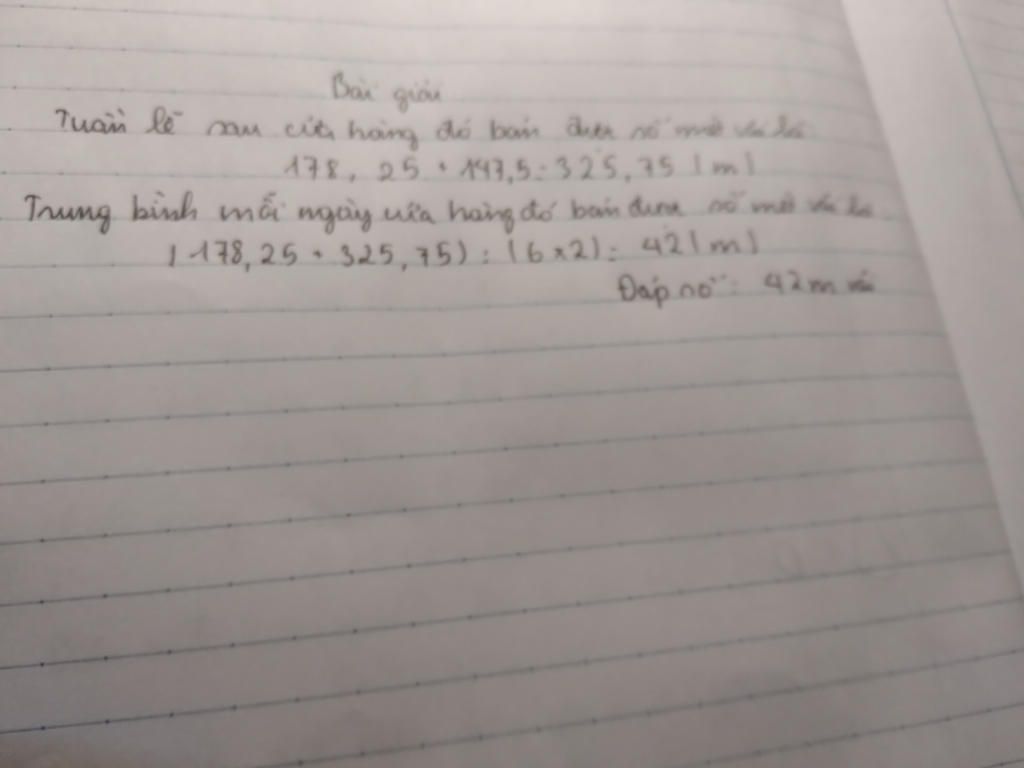 Bài giải
Tuần lễ sau cửa hàng đó bán được số mét vải là
178,25 + 147,5 = 325,75 (m)
Trung bình mỗi ngày cửa hàng đó bán được số mét vải là
(178,25 + 325,75) : (6 x 2) = 42 (m)
Đáp số: 42m vải